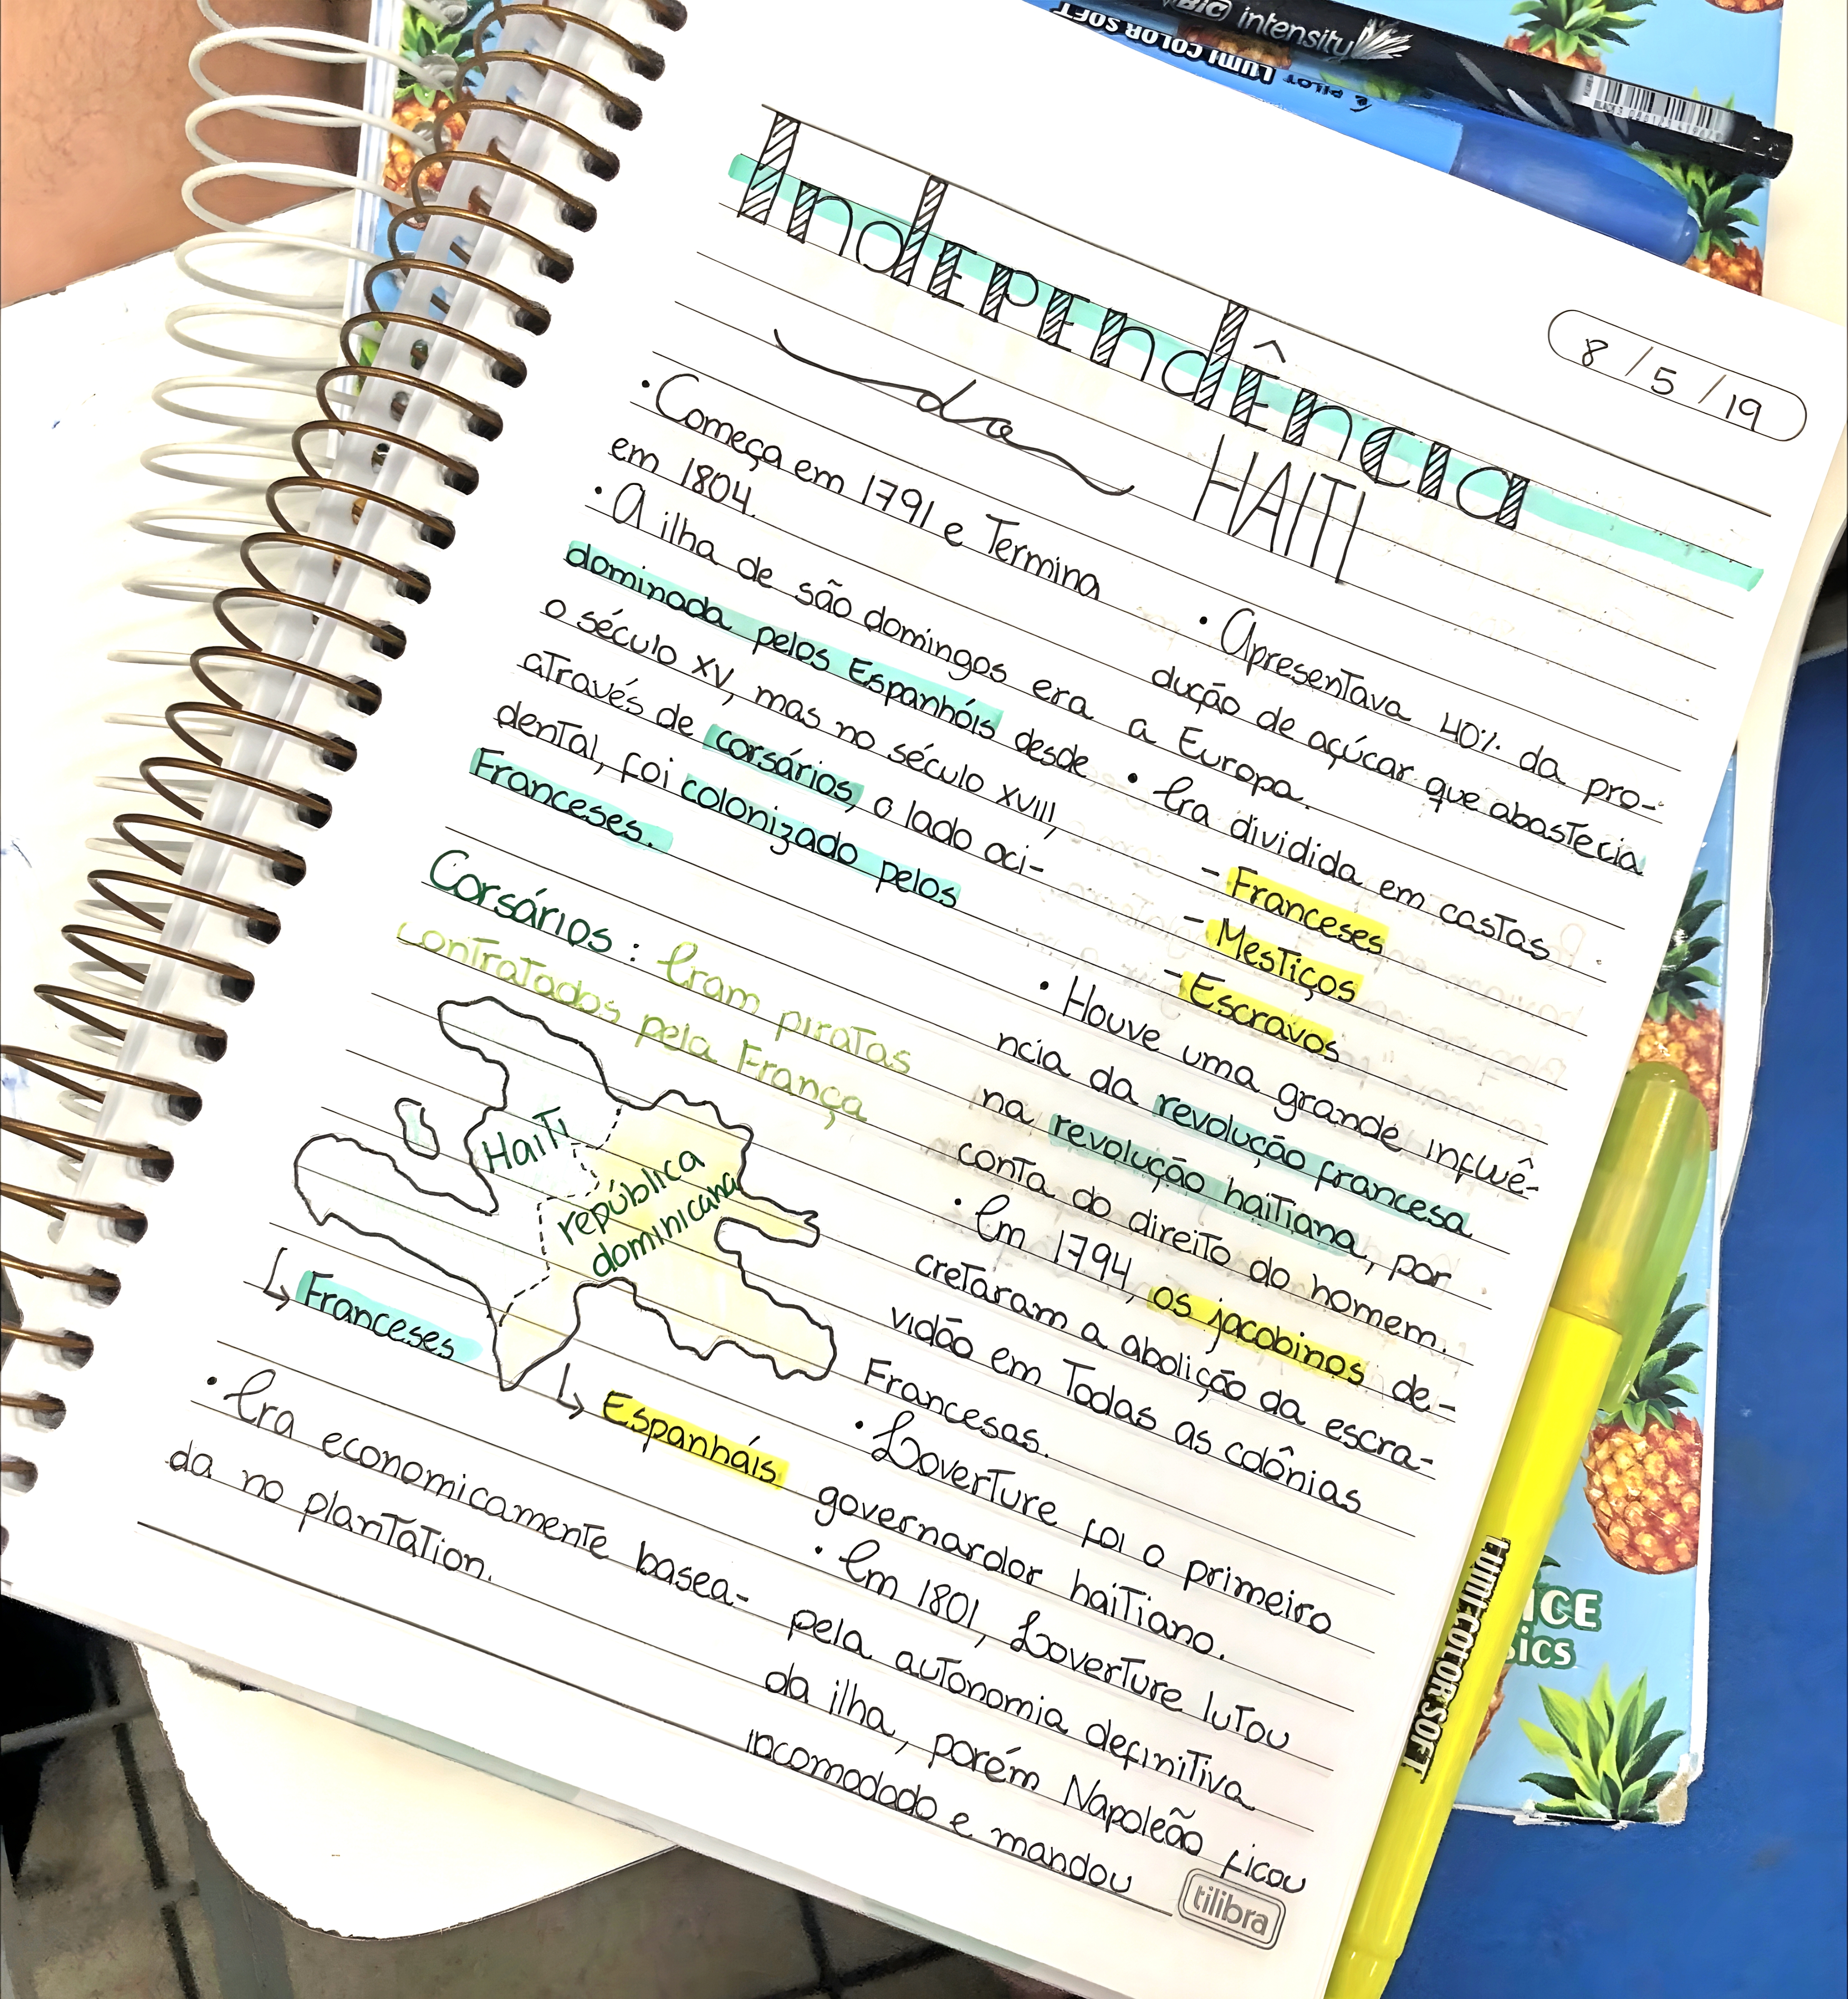 BIC intensity
PILOT LUMI COLOR SOFT
8/5/19
Independência
do
HAITI
• Começa em 1791 e Termina
em 1804.
• A ilha de são domingos era
dominada pelos Espanhóis desde
o século XV, mas no século XVIII,
através de corsários, o lado oci-
dental, foi colonizado pelos
Franceses.
Corsários: Eram piratas
contratados pela França
Haiti
república
dominicana
↳ Franceses
↳ Espanhóis
• Era economicamente basea-
da no plantation.
• Apresentava 40% da pro-
dução de açúcar que abastecia
a Europa.
• Era dividida em castas
- Franceses
- Mestiços
- Escravos
• Houve uma grande influê-
ncia da revolução francesa
na revolução haitiana, por
conta do direito do homem.
• Em 1794, os jacobinos de-
cretaram a abolição da escra-
vidão em Todas as colônias
Francesas.
• Loverture foi o primeiro
governardor haitiano.
• Em 1801, Loverture lutou
pela autonomia definitiva
da ilha, porém Napoleão ficou
incomodado e mandou
tilibra
LUMI COLOR SOFT
ICE
sics